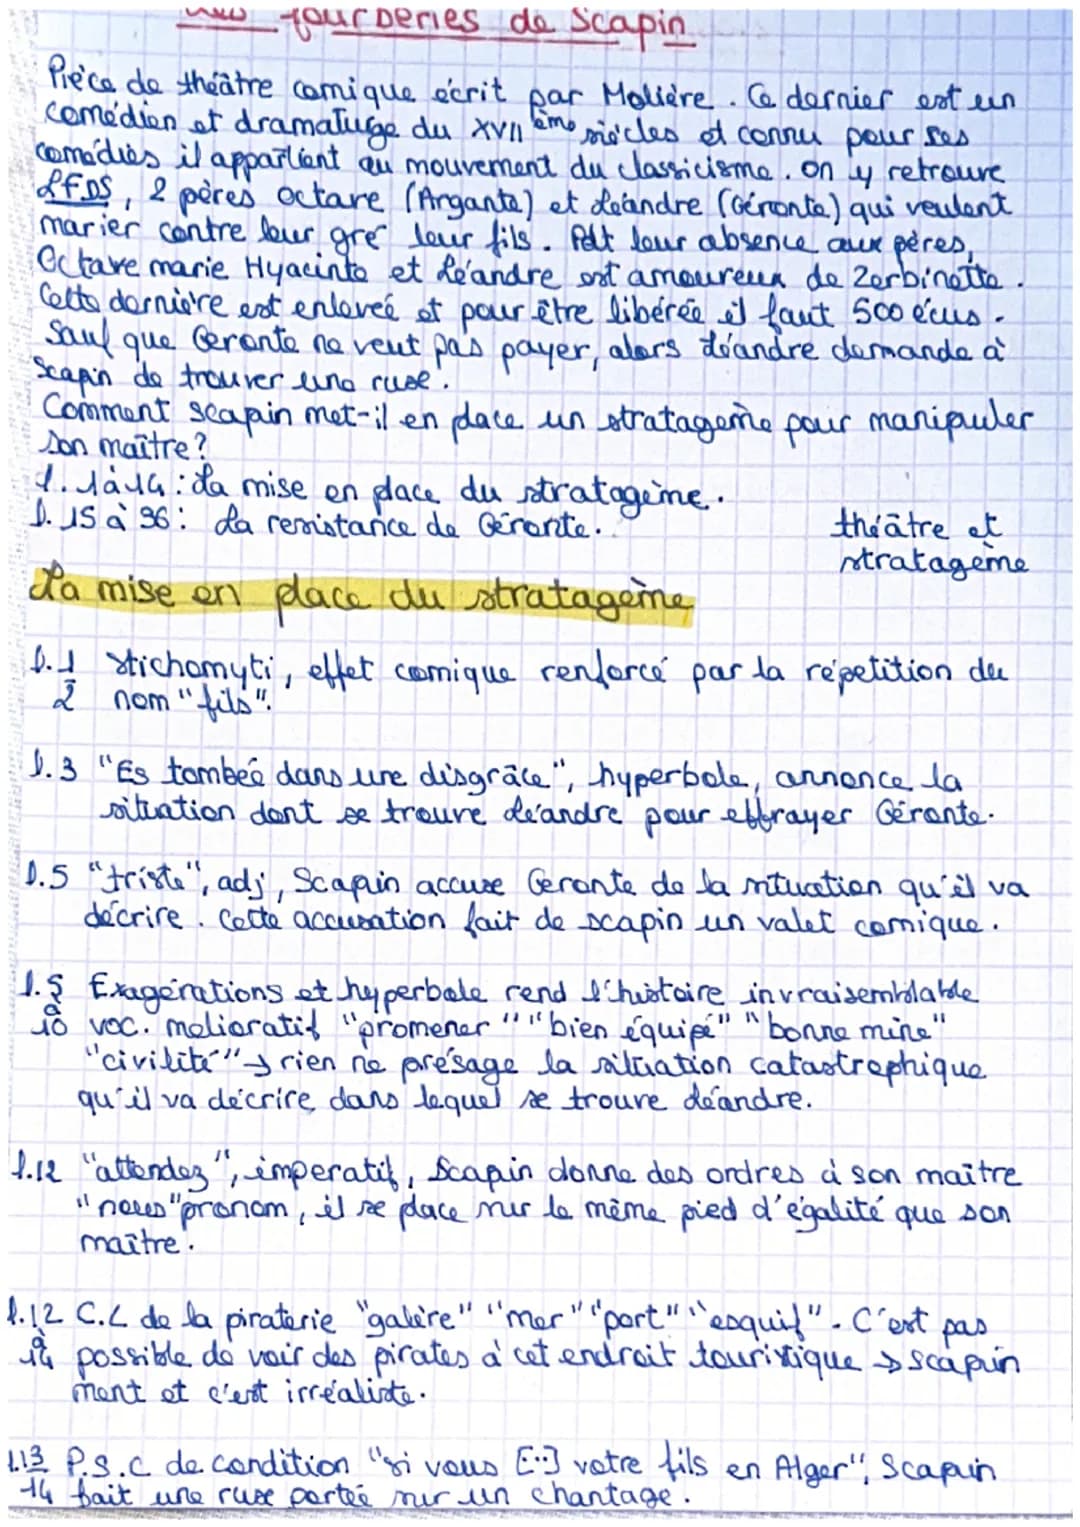 Les fourberies de Scapin
Pièce de théâtre comique écrit par Molière. Ce dernier est un
comédien et dramaturge du XVII ème siècles et connu pour ses
comédies il appartient au mouvement du classicisme. On y retrouve
LFDS, 2 pères Octave (Argante) et Léandre (Géronte) qui veulent
marier contre leur gré leur fils. Pdt leur absence aux pères,
Octave marie Hyacinte et Léandre est amoureux de Zerbinette.
Cette dernière est enlevée et pour être libérée il faut 500 écus.
Sauf que Geronte ne veut pas payer, alors Léandre demande à
Scapin de trouver une ruse.
Comment scapin met-il en place un stratagème pour manipuler
son maître?
l. 1 à 14 : La mise en place du stratagème.
l. 15 à 36 : La resistance de Géronte.
théâtre et
stratagème
La mise en place du stratagème
l.1 stichomyti, effet comique renforcé par la répetition du
2 nom "fils".
l.3 "Es tombée dans une disgrâce", hyperbole, annonce la
situation dont se trouve Léandre pour effrayer Géronte.
l.5 "triste", adj, Scapin accuse Geronte de la situation qu'il va
décrire. Cette accusation fait de scapin un valet comique.
l.5 Exagérations et hyperbole rend l'histoire invraisemblable
à
10 voc. melioratif "promener" "bien équipé" "bonne mine"
"civilité" → rien ne présage la situation catastrophique
qu'il va décrire dans lequel se trouve Léandre.
l.12 "attendez", imperatif, Scapin donne des ordres à son maître
"nous" pronom, il se place sur le même pied d'égalité que son
maître.
l.12 C.L de la piraterie "galère" "mer" "port" "esquif". C'est pas
à
14 possible de voir des pirates à cet endroit touristique → scapin
ment et c'est irréaliste.
l.13 P.S.C de condition "si vous [...] votre fils en Alger", Scapin
14 fait une ruse portée sur un chantage.